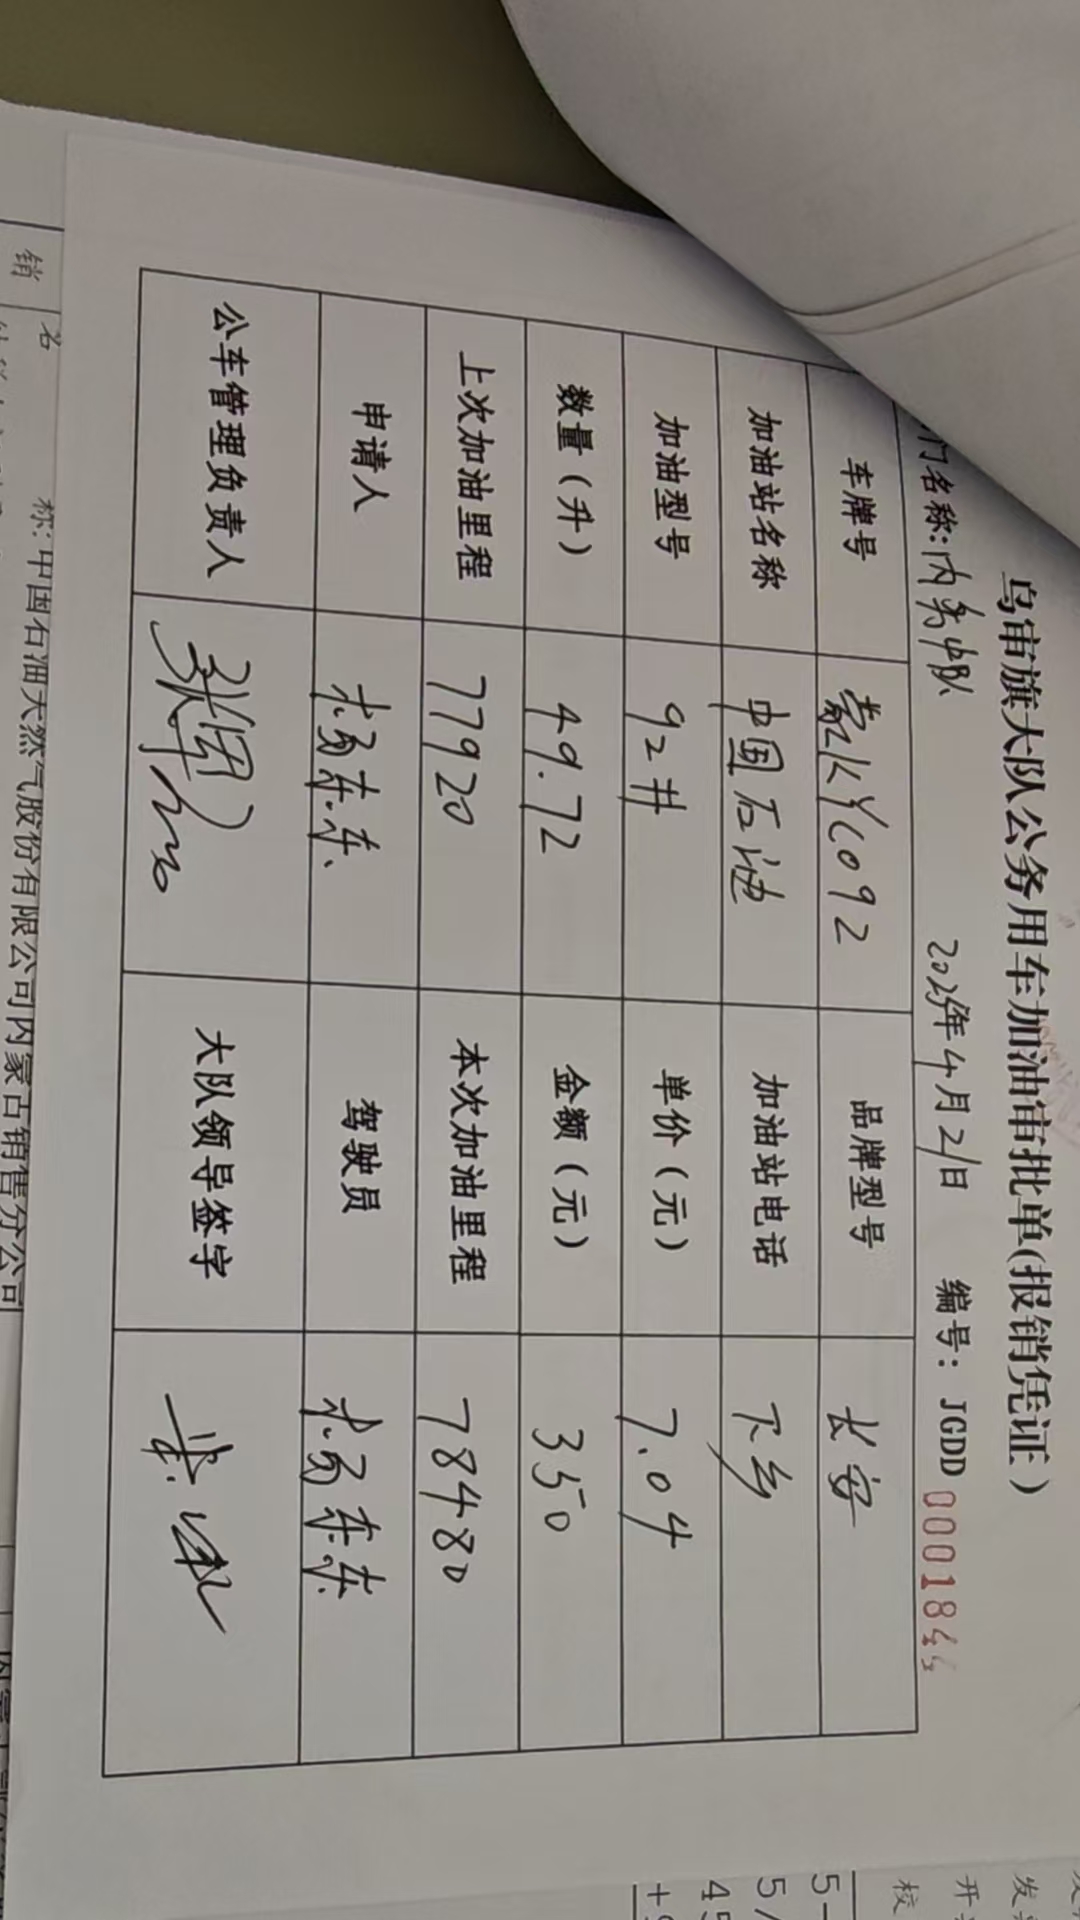 乌审旗大队公务用车加油审批单(报销凭证)
门名称:内务中队 2025年4月21日 编号：JGDD 0001844
车牌号 蒙KYC092 品牌型号 长安
加油站名称 中国石油 加油站电话 下乡
加油型号 92井 单价(元) 7.04
数量(升) 49.72 金额(元) 350
上次加油里程 77920 本次加油里程 78480
申请人 驾驶员
公车管理负责人 大队领导签字
销
名
称:中国石油天然气股份有限公司内蒙古销售分公司
校
开